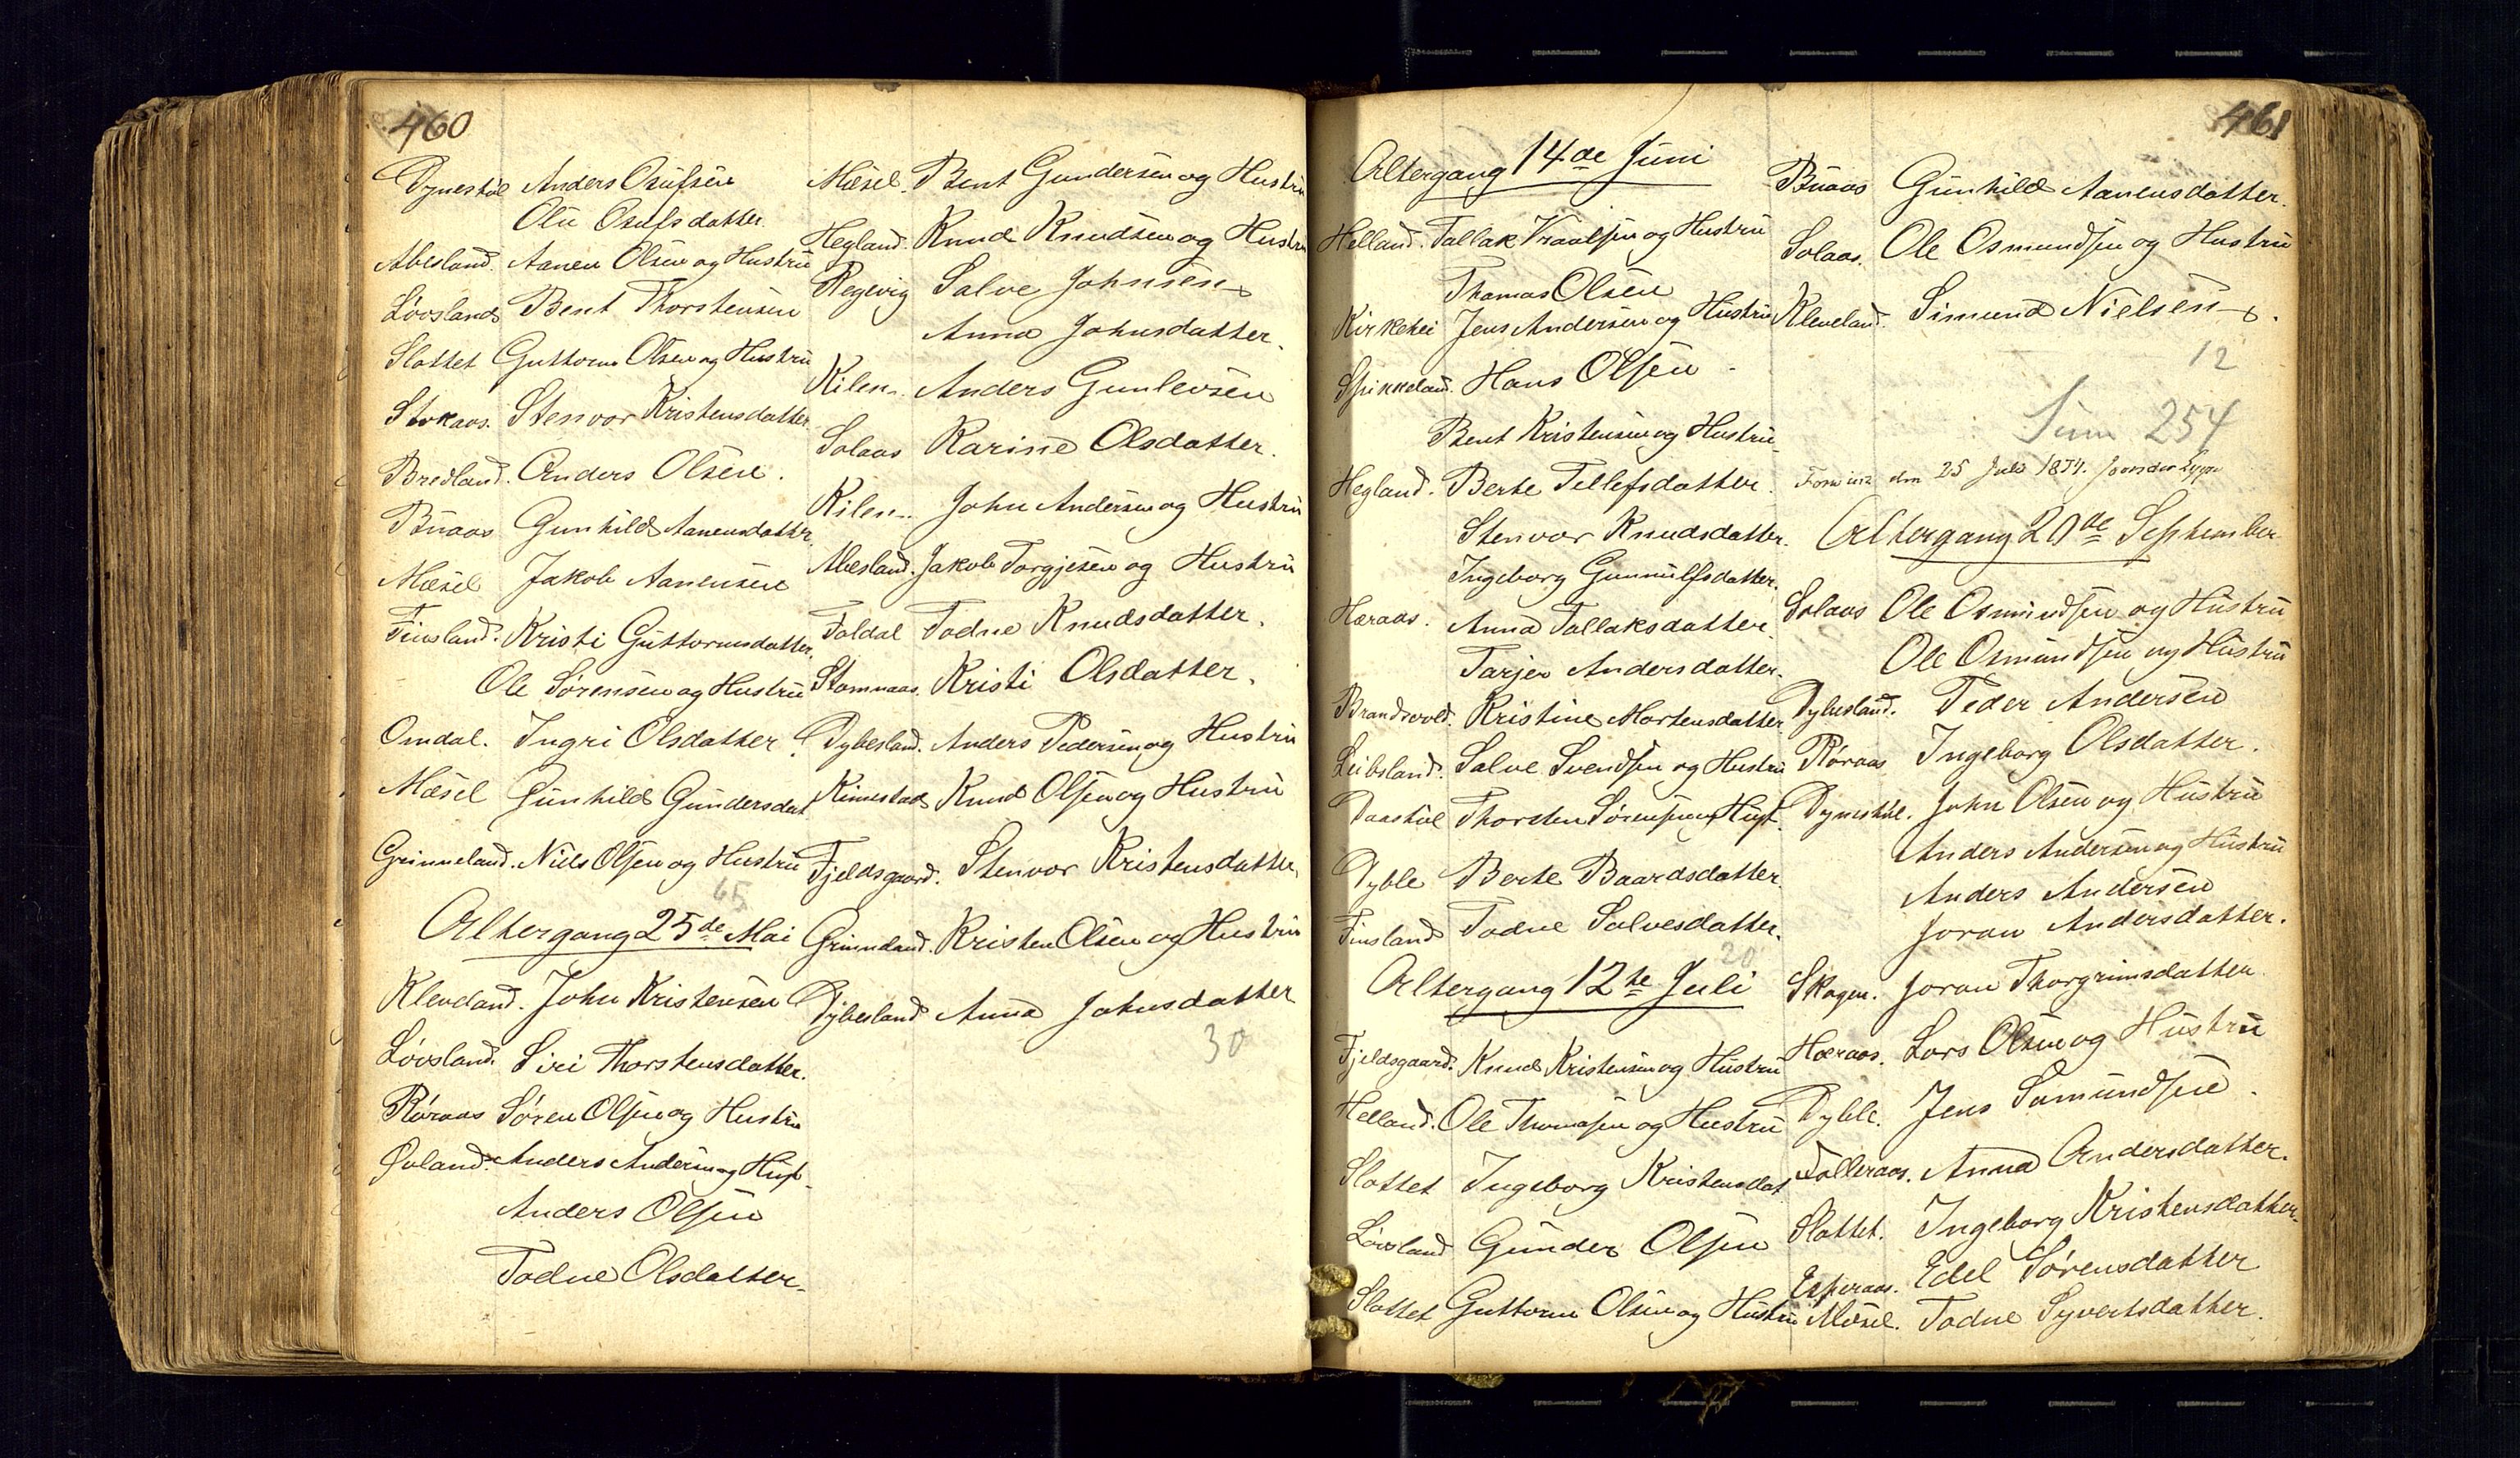 460
Dynestøl Anders Osufsen
Olu Osufsdatter.
Abesland. Aanen Olsen og Hustru
Løvsland Bent Thorstensen
Slottet Guttorm Olsen og Hustru
Stokaas. Stenvor Kristensdatter
Bredland. Anders Olsen.
Buaas Gunhild Aanensdatter.
Mæsel Jakob Aanensen
Finsland. Kristi Guttormsdatter.
Ole Sørensen og Hustru
Omdal. Ingri Olsdatter.
Mæsel Gunhild Gundersdat
Grinneland. Niels Olsen og Hustru
65
Altergang 25de Mai
Kleveland. John Kristensen
Løvsland. Siri Thorstensdatter.
Røraas Søren Olsen og Hustru
Øvland. Anders Andersen og Hust.
Anders Olsen
Todne Olsdatter.
Mæsel. Bent Gundersen og Hustru
Hegland. Knud Knudsen og Hustru
Regevig Salve Johnsen
Anna Johnsdatter.
Kilen. Anders Gunlevsen
Solaas Karine Olsdatter.
Kilen. John Andersen og Hustru
Abesland. Jakob Torgjesen og Hustru
Foldal Todne Knudsdatter.
Stomnaas. Kristi Olsdatter.
Dybesland. Anders Pedersen og Hustru
Kimestad Knud Olsen og Hustru
Fjeldsgaard. Stenvor Kristensdatter.
Grinneland. Kristen Olsen og Hustru
Dybesland Anna Johnsdatter
30
461
Altergang 14de Juni
Helland. Tallak Kraulsen og Hustru
Thomas Olsen
Kirkehei Jens Andersen og Hustru
Spikkeland. Hans Olsen
Bent Kristensen og Hustru
Hegland. Berte Tellefsdatter.
Stenvor Knudsdatter.
Ingeborg Gunnulfsdatter.
Høraas. Anna Tallaksdatter.
Tarjer Andersdatter.
Brandsvold. Kristine Mortensdatter
Leibsland. Salve Svendsen og Hustru
Daastøl Thorsten Sørensen og Hust.
Dyble Berte Baardsdatter.
Finsland Todne Salvesdatter.
20
Altergang 12te Juli
Fjeldsgaard. Knud Kristensen og Hustru
Helland. Ole Thomasen og Hustru
Slottet Ingeborg Kristensdat
Løvsland Gunder Olsen
Slottet Guttorm Olsen og Hustru
Buaas Gunhild Aanensdatter.
Solaas. Ole Osmundsen og Hustru
Kleveland. Simund Nielsen.
12
Sum 254
den 25 Juli 1874.
Altergang 20de September
Solaas Ole Osmundsen og Hustru
Ole Osmundsen og Hustru
Dybesland. Peder Andersen
Røraas Ingeborg Olsdatter.
Dynestøl. John Olsen og Hustru
Anders Andersen og Hustru
Anders Andersen
Joran Andersdatter.
Skogen. Joran Thorgrimsdatter
Høraas. Lars Olsen og Hustru
Dyble. Jens Samundsen.
Tolleraas. Anna Andersdatter.
Slottet. Ingeborg Kristensdatter.
Esperaas. Edel Sørensdatter
Mæsel. Todne Syvertsdatter.